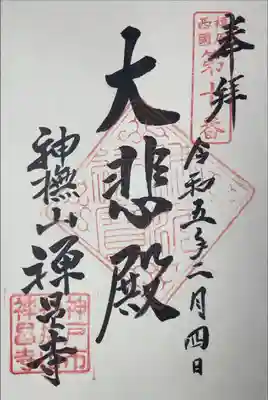 奉拝
令和五年二月四日
大悲殿
神撫山禅昌寺
西國
神戸市
禅昌寺